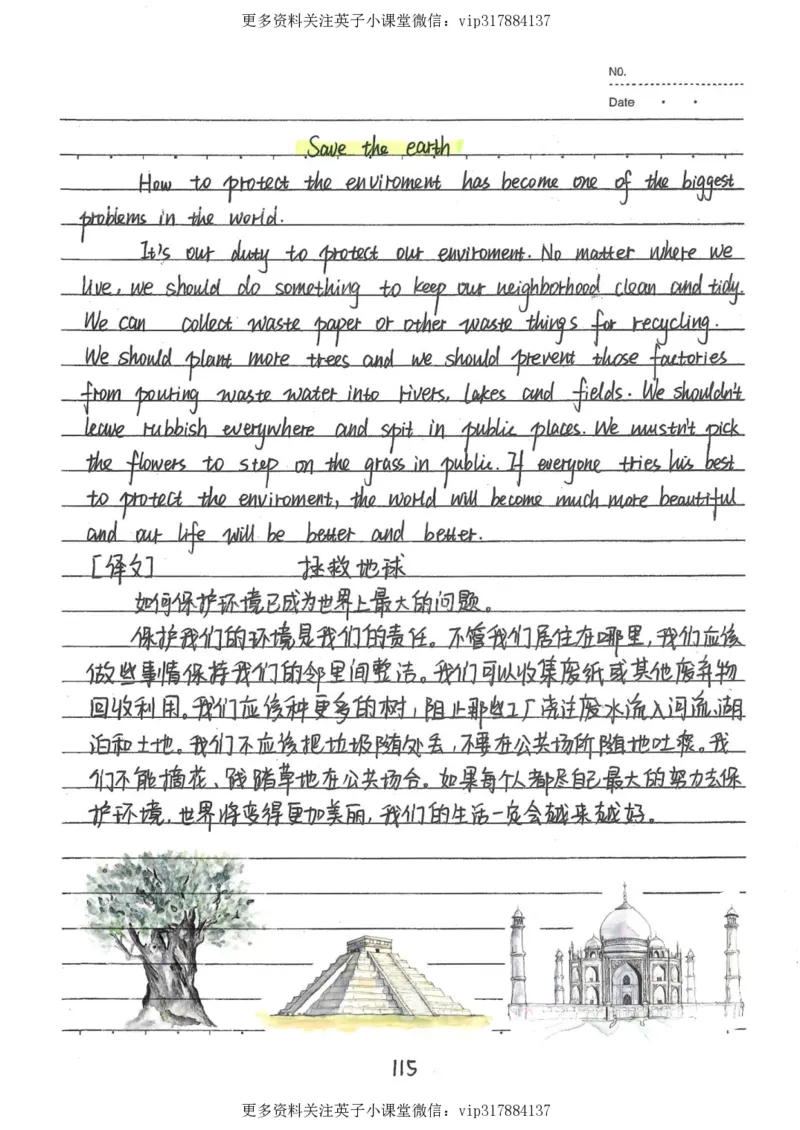 更多资料关注英子小课堂微信：vip317884137
NO.
Date
Save the earth
How to protect the enviroment has become one of the biggest
problems in the world.
It's our duty to protect our enviroment. No matter where we
live, we should do something to keep our neighborhood clean and tidy.
We can collect waste paper or other waste things for recycling.
We should plant more trees and we should prevent those factories
from pouring waste water into rivers, lakes and fields. We shouldn't
leave rubbish everywhere and spit in public places. We mustn't pick
the flowers to step on the grass in public. If everyone tries his best
to protect the enviroment, the world will become much more beautiful
and our life will be better and better.
[译文] 拯救地球
如何保护环境已成为世界上最大的问题。
保护我们的环境是我们的责任。不管我们居住在哪里，我们应该
做些事情保持我们的邻里间整洁。我们可以收集废纸或其他废弃物
回收利用。我们应该种更多的树，阻止那些工厂浇注废水流入河流、湖
泊和土地。我们不应该把垃圾随处丢，不要在公共场所随地吐痰。我
们不能摘花、践踏草地在公共场合。如果每个人都尽自己最大的努力去保
护环境，世界将变得更加美丽，我们的生活一定会越来越好。
115
更多资料关注英子小课堂微信：vip317884137